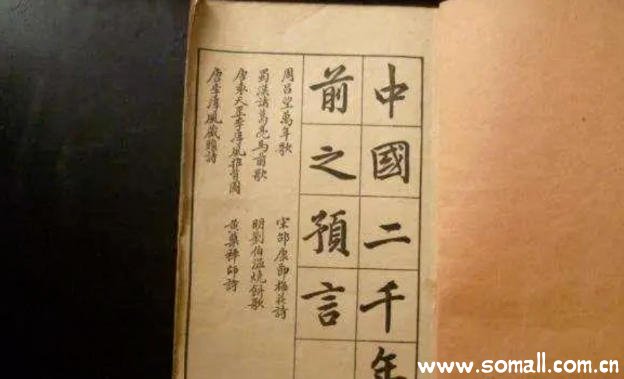 中國二千年
前之預言
周呂望萬年歌
蜀漢諸葛亮馬前歌
唐袁天罡李淳風推背圖
唐李淳風藏頭詩
宋邵康節梅花詩
明劉伯溫燒餅歌
黃蘗禪師詩
www.somall.com.cn